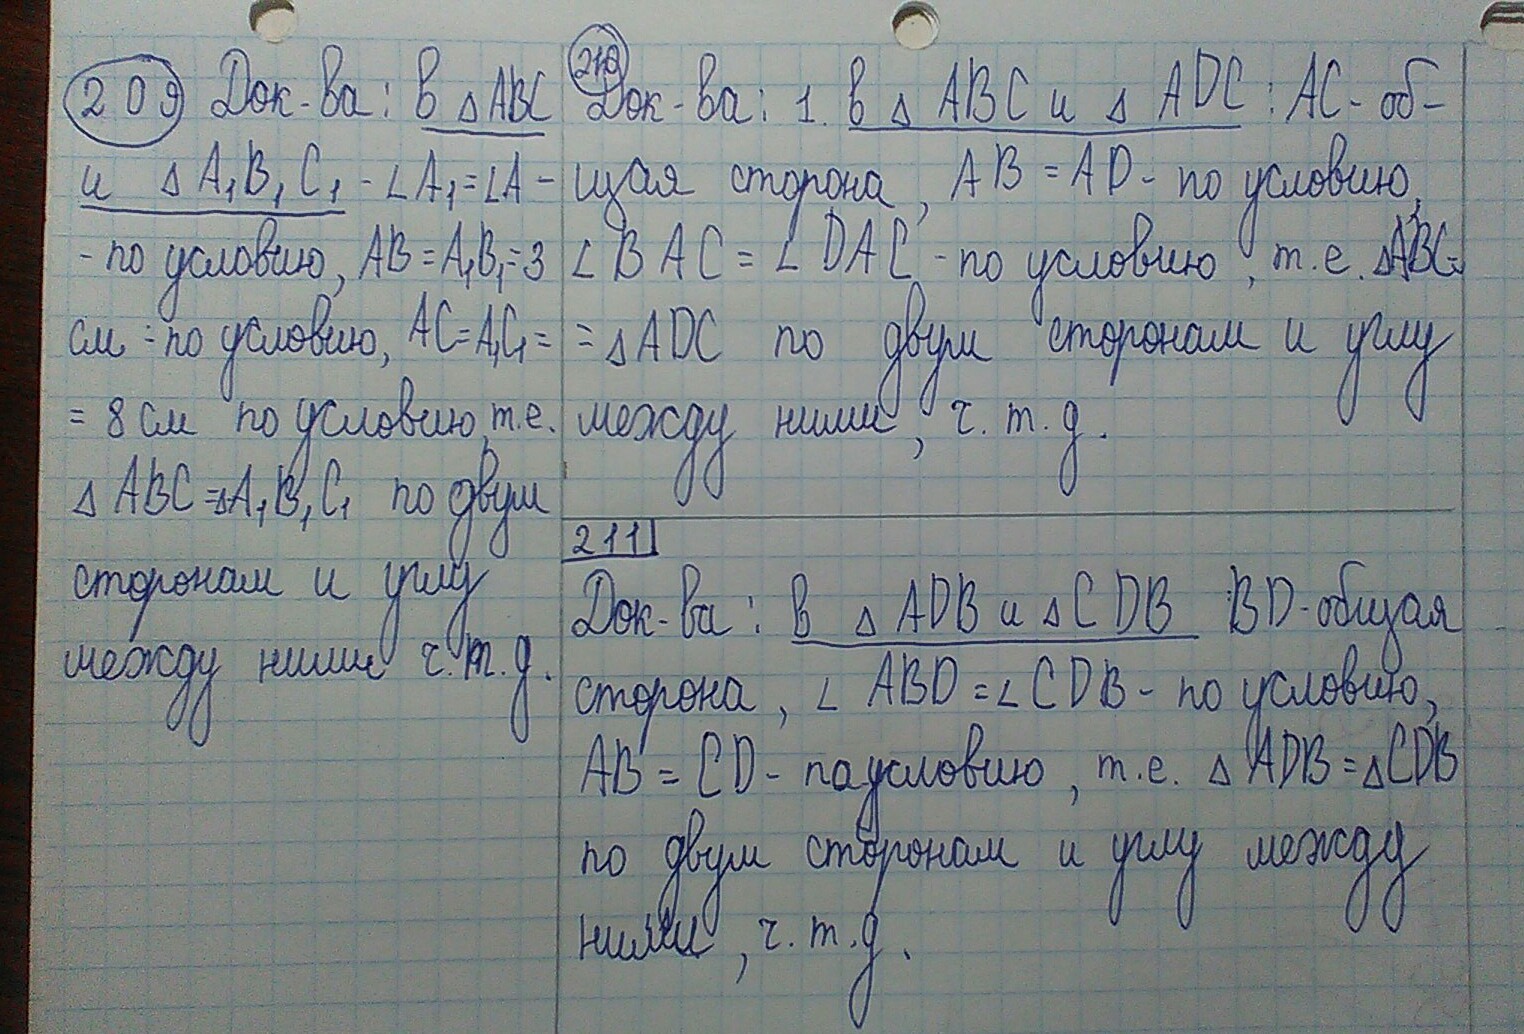 209 Док-ва: в △ABC
и △A₁B₁C₁ - ∠A₁=∠A -
- по условию, AB=A₁B₁=3
см - по условию, AC=A₁C₁=
= 8 см по условию, т.е.
△ABC=△A₁B₁C₁ по двум
сторонам и углу
между ними ч.т.д.
210
Док-ва: 1. в △ABC и △ADC: AC- об-
щая сторона, AB=AD- по условию,
∠BAC=∠DAC - по условию, т.е. △ABC=
=△ADC по двум сторонам и углу
между ними, ч.т.д.
211
Док-ва: в △ADB и △CDB BD-общая
сторона, ∠ABD=∠CDB- по условию,
AB=CD- по условию, т.е. △ADB=△CDB
по двум сторонам и углу между
ними, ч.т.д.